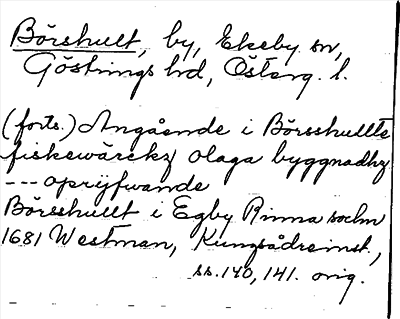 Börshult, by, Ekeby sn,
Göstrings hd, Österg. l.
(forts.) Angående i Börsshullte
fiskewärckz olaga byggnadhz
--- oprijfwande
Börsshullt i Egby Rinna sochn
1681 Westman, Kungsådreinst.,
ss. 140, 141. orig.